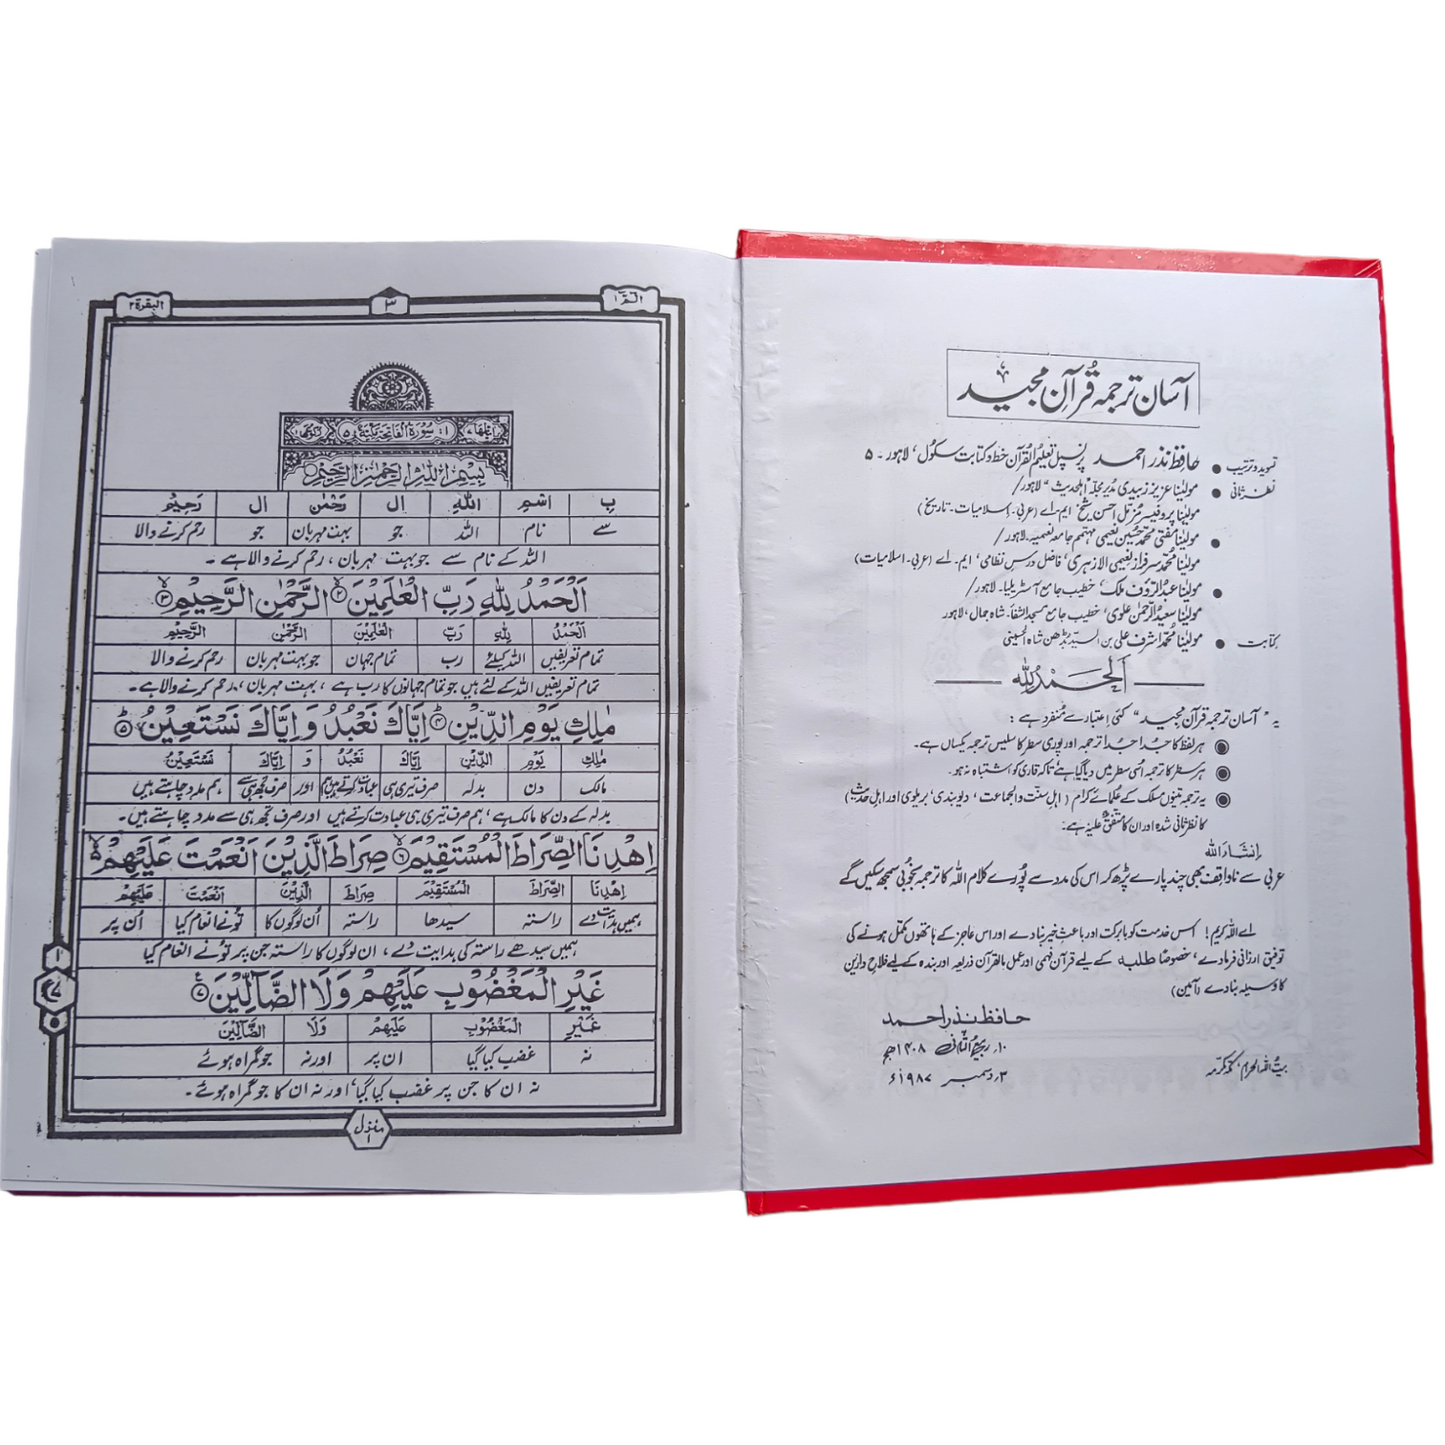 آسان ترجمہ قُرآن مجید
تسوید و ترتیب ● حافظ نذر احمد پرنسپل تعلیم القرآن خط و کتابت سکول، لاہور - ۵
نظرثانی ● مولینا عزیز زبیدی مدیر مجلہ "اہلحدیث" لاہور /
مولینا پروفیسر مزمل احسن شیخ ایم-اے (عربی-اسلامیات-تاریخ)
● مولینا مفتی محمد حسین نعیمی مہتمم جامعہ نعیمیہ-لاہور /
مولینا محمد سرفراز نعیمی الازہری، فاضل درس نظامی، ایم-اے (عربی-اسلامیات)
● مولینا عبدالرؤف ملک، خطیب جامع آسٹریلیا-لاہور /
مولینا سعید الرحمٰن علوی، خطیب جامع مسجد الشفا-شاہ جمال، لاہور
کتابت ● مولینا محمد اشرف علی بن السید بڈھن شاہ الحسینی
اَلحَمْدُ لِلّٰہ
یہ "آسان ترجمہ قرآن مجید" کئی اعتبار سے منفرد ہے :
◉ ہر لفظ کا جدا جدا ترجمہ اور پوری سطر کا سلیس ترجمہ یکساں ہے۔
◉ ہر سطر کا ترجمہ اُسی سطر میں دیا گیا ہے تاکہ قاری کو اشتباہ نہ ہو۔
◉ یہ ترجمہ تینوں مسلک کے علمائے کرام (اہل سنت والجماعت، دیوبندی، بریلوی اور اہل حدیث)
کا نظرثانی شدہ اور ان کا متفق علیہ ہے۔
اِنشَاءَ اللہ
عربی سے ناواقف بھی چند پارے پڑھ کر اس کی مدد سے پُورے کلام اللہ کا ترجمہ بخوبی سمجھ سکیں گے
اے اللہ کریم! اس خدمت کو بابرکت اور باعثِ خیر بنا دے اور اس عاجز کے ہاتھوں مکمل ہونے کی
توفیق ارزانی فرما دے، خصوصاً طلبہ کے لیے قرآن فہمی اور عمل بالقرآن ذریعہ اور بندہ کے لیے فلاحِ دارین
کا وسیلہ بنا دے (آمین)
حافظ نذر احمد
۱۰ ربیع الثانی ۱۴۰۸ھ
بیتُ اللہ الحرام، مکہ مکرمہ ۳ دسمبر ۱۹۸۷ء
الٓمّٓ ۱ ۳ البقرة ۲
اٰیاتھا ۷ ۱: سُوْرَةُ الْفَاتِحَةِ مَكِّيَّةٌ ۵ رکوعھا ۱
بِسْمِ اللّٰهِ الرَّحْمٰنِ الرَّحِيْمِ
بِ اسْمِ اللّٰهِ ال رَحْمٰن ال رَحِيْمِ
سے نام اللہ جو بہت مہربان جو رحم کرنے والا
اللہ کے نام سے جو بہت مہربان، رحم کرنے والا ہے۔
اَلْحَمْدُ لِلّٰهِ رَبِّ الْعٰلَمِيْنَ ۲ الرَّحْمٰنِ الرَّحِيْمِ ۳
اَلْحَمْدُ لِلّٰهِ رَبِّ الْعٰلَمِيْنَ الرَّحْمٰنِ الرَّحِيْمِ
تمام تعریفیں اللہ کیلئے رب تمام جہان جو بہت مہربان رحم کرنے والا
تمام تعریفیں اللہ کے لئے ہیں جو تمام جہانوں کا رب ہے، بہت مہربان، رحم کرنے والا ہے۔
مٰلِكِ يَوْمِ الدِّيْنِ ۴ اِيَّاكَ نَعْبُدُ وَ اِيَّاكَ نَسْتَعِيْنُ ۵
مٰلِكِ يَوْمِ الدِّيْنِ اِيَّاكَ نَعْبُدُ وَ اِيَّاكَ نَسْتَعِيْنُ
مالک دن بدلہ صرف تیری ہی عبادت کرتے ہیں ہم اور صرف تجھ ہی سے ہم مدد چاہتے ہیں
بدلہ کے دن کا مالک ہے، ہم صرف تیری ہی عبادت کرتے ہیں اور صرف تجھ ہی سے مدد چاہتے ہیں۔
اِهْدِنَا الصِّرَاطَ الْمُسْتَقِيْمَ ۶ صِرَاطَ الَّذِيْنَ اَنْعَمْتَ عَلَيْهِمْ
اِهْدِنَا الصِّرَاطَ الْمُسْتَقِيْمَ صِرَاطَ الَّذِيْنَ اَنْعَمْتَ عَلَيْهِمْ
ہمیں ہدایت دے راستہ سیدھا راستہ اُن لوگوں کا تُو نے انعام کیا اُن پر
ہمیں سیدھے راستہ کی ہدایت دے، ان لوگوں کا راستہ جن پر تُو نے انعام کیا
غَيْرِ الْمَغْضُوْبِ عَلَيْهِمْ وَلَا الضَّآلِّيْنَ ۷
غَيْرِ الْمَغْضُوْبِ عَلَيْهِمْ وَلَا الضَّآلِّيْنَ
نہ غضب کیا گیا ان پر اور نہ جو گمراہ ہوئے
نہ ان کا جن پر غضب کیا گیا، اور نہ ان کا جو گمراہ ہوئے۔
منزل ۱